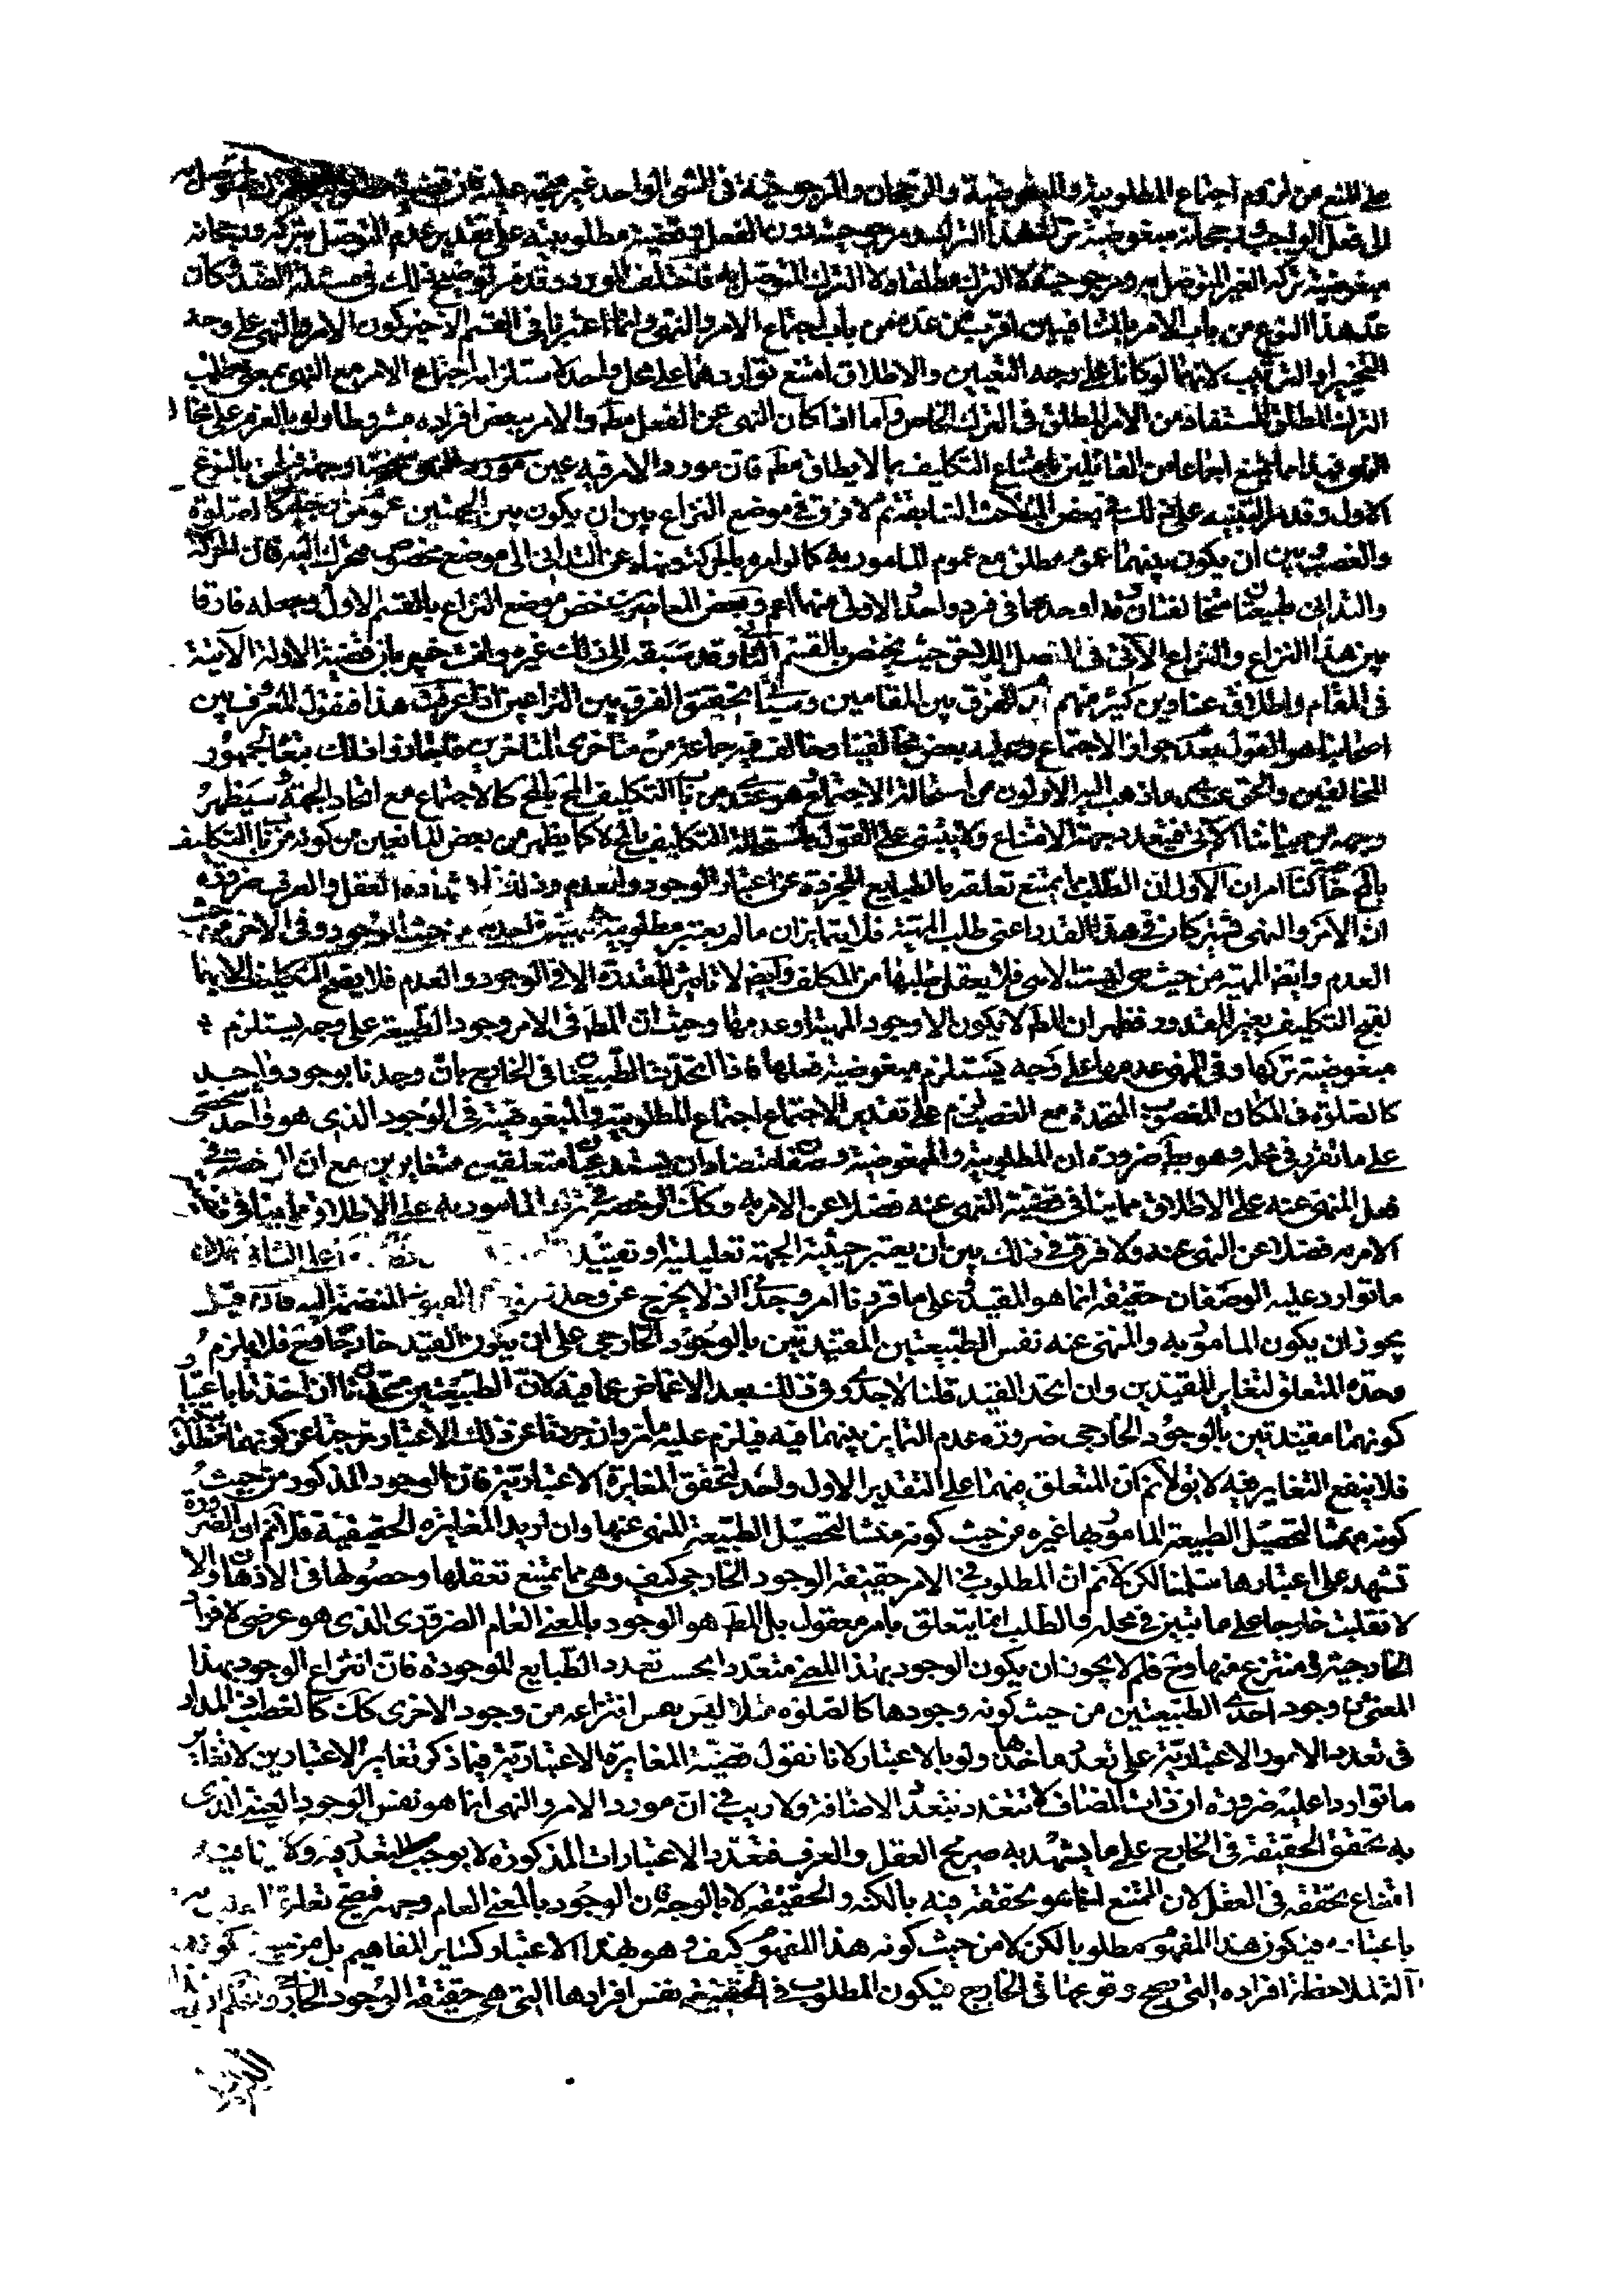 على المنع من لزوم اجتماع المطلوبية والمبغوضية والرجحان والمرجوحية فى الشئ الواحد غير متجه عليه فان قضية
الى فعل الواجب ورجحانه مبغوضية ترك هذا الترك ومرجوحيته دون الفعل وقضية مطلوبيته على تقدير عدم التوصل بتركه ورجحانه
مبغوضية تركه الغير المتوصل به ومرجوحيته لا الترك مطلقا ولا الترك المتوصل به فاختلف المورد وقد مر توضيح ذلك فى مسئلة الضد وكان
عد هذا النوع من باب الامر بالمتنافيين اقرب من عده من باب اجتماع الامر والنهى وانما اعتبرنا فى القسم الاخير كون الامر والنهى على وجه
التخيير او الترتب لانهما لو كانا على وجه التعيين والاطلاق امتنع تواردهما على محل واحد لاستلزامه اجتماع الامر مع النهى بمعنى طلب
الترك المطلق المستفاد من الامر المطلق فى الترك الخاص واما اذا كان النهى عن الفعل مطلقا والامر ببعض افراده مشروطا ولو بالعزم على
النهى فهذا مما يمتنع اجماعا من القائلين بامتناع التكليف بما لا يطاق مط فان مورد الامر فيه عين مورد النهى وجهة فيلحق بالنوع
الاول وقد مر التنبيه على ذلك فى بعض المباحث السابقة ثم لا فرق فى موضع النزاع بين ان يكون بين الجهتين عموم من وجه كالصلوة
والغصب وبين ان يكون بينهما عموم مطلق مع عموم المامور به كما لو امره بالحركة ونهاه عن التدانى الى موضع مخصوص فتحرك اليه فان الحركة
والتدانى طبيعتان متخالفتان قد اوجدهما فى فرد واحد والاولى منهما اعم وبعض المعاصرين خص موضع النزاع بالقسم الاول وجعله فارقا
بين هذا النزاع والنزاع الآتى فى الفصل اللاحق حيث يختص بالقسم الثانى وقد سبقه الى ذلك غيره وانت خبير بان قضية الادلة الآتية
فى المقام واطلاق عناوين كثير منهم عدم الفرق بين المقامين وسيأتى تحقيق الفرق بين النزاعين اذا عرفت هذا فنقول المعروف بين
اصحابنا هو القول بعدم جواز الاجتماع وعليه بعض مخالفينا وخالف فيه جماعة من متاخرى المتاخرين فاجازوا ذلك تبعا لجمهور
المخالفين والحق عندى ما ذهب اليه الاولون من استحالة الاجتماع وهو عندى من باب التكليف المحال كالاجتماع مع اتحاد الجهة وسيظهر
وجهه من بياننا الآتى فيتعدد جهة الامتناع ولا يبتنى على القول باستحالة التكليف بالمحال كما يظهر من بعض المانعين من كونه من باب التكليف
بالمحال لنا امران الاول ان الطلب مما يمتنع تعلقه بالطبايع المجردة عن اعتبار الوجود والعدم وذلك لشهادة العقل والعرف ضرورة
ان الامر والنهى مشتركان فى هذا القدر اعنى طلب المهية فلا يتمايزان ما لم يعتبر مطلوبية المهية فى احدهما من حيث الوجود وفى الآخر من حيث
العدم وايضا المهية من حيث هى ليست الا هى فلا يعقل طلبها من المكلف وايضا لا تاثير للقدرة الا فى الوجود والعدم فلا يصح التكليف الا بهما
لقبح التكليف بغير المقدور فظهر ان المط لا يكون الا وجود المهية او عدمها وحيث ان المط فى الامر وجود الطبيعة على وجه يستلزم
مبغوضية تركها وفى النهى عدمها على وجه يستلزم مبغوضية فعلها فاذا اتحدت الطبيعتان فى الخارج بان وجدتا بوجود واحد
كالصلوة فى المكان المغصوب المتحدة مع الغصب لزم على تقدير الاجتماع اجتماع المطلوبية والمبغوضية فى الوجود الذى هو واحد شخصى
على ما تقرر فى محله وهو بط ضرورة ان المطلوبية والمبغوضية وصفان متضادان يستدعيان متعلقين متغايرين مع ان الرخصة فى
فعل المنهى عنه على الاطلاق مما ينافى قضية النهى عنه فضلا عن الامر به وكذا الرخصة فى ترك المامور به على الاطلاق مما ينافى
الامر به فضلا عن النهى عنه ولا فرق فى ذلك بين ان يعتبر حيثية الجهة تعليلية او تقييدية اما على الثانى فلان
ما توارد عليه الوصفان حقيقة انما هو المقيد وهو على ما قررنا امر وحدانى اذ لا يخرج عن وحدته القيود المنضمة اليه فان قيل
يجوز ان يكون المامور به والمنهى عنه نفس الطبيعتين المقيدتين بالوجود الخارجى على ان يكون القيد خارجا وح فلا يلزم
وحدة المتعلق لتغاير المقيدين وان اتحد القيد قلنا لا جدوى فى ذلك بعد الاغماض عما فيه لان الطبيعتين متحدتان ان اخذتا باعتبار
كونهما مقيدتين بالوجود الخارجى ضرورة عدم التمايز بينهما فيه فيلزم عليه ما مر وان جردتا عن ذلك الاعتبار خرجتا عن كونهما متعلق
فلا ينفع التغاير فيه لا يق لا نم ان المتعلق منهما على التقدير الاول واحد لتحقق المغايرة الاعتبارية فان الوجود المذكور من حيث
كونه منشا لتحصيل الطبيعة المامور بها غيره من حيث كونه منشا لتحصيل الطبيعة المنهى عنها وان اريد المغايرة الحقيقية فلا نم ان الضرورة
تشهد على اعتبارها سلمنا لكن لا نم ان المطلوب فى الامر حقيقة الوجود الخارجى كيف وهى مما يمتنع تعقلها وحصولها فى الاذهان والا
لانقلبت خارجا على ما تبين فى محله والطلب انما يتعلق بامر معقول بل المط هو الوجود بالمعنى العام الضرورى الذى هو عرضى لافراد
الخارجية ومنتزع منها وح فلم لا يجوز ان يكون الوجود بهذا المعنى متعددا بحسب تعدد الطبايع الموجودة فان انتزاع الوجود بهذا
المعنى من وجود احدى الطبيعتين من حيث كونه وجودها كالصلوة مثلا ليس بعين انتزاعه من وجود الاخرى كالغصب اذ المدار
فى تعدد الامور الاعتبارية على تعدد ماخذها ولو بالاعتبار لانا نقول قضية المغايرة الاعتبارية فيما ذكر تغاير الاعتبارين لا تغاير
ما تواردا عليه ضرورة ان ذات المضاف لا تتعدد بتعدد الاضافة ولا ريب فى ان مورد الامر والنهى انما هو نفس الوجود العينى الذى
به تحقق الحقيقة فى الخارج على ما يشهد به صريح العقل والعرف فتعدد الاعتبارات المذكورة لا يوجب التعدد فيه ولا ينافيه
امتناع تحققه فى العقل لان الممتنع انما هو تحققه فيه بالكنه والحقيقة لا بالوجه فان الوجود بالمعنى العام وجهه فيصح تعلق
باعتباره فيكون هذا المفهوم مطلوبا لكن لا من حيث كونه هذا المفهوم كيف وهو بهذا الاعتبار كساير المفاهيم بل من حيث كونه
آلة لملاحظة افراده التى يصح وقوعها فى الخارج فيكون المطلوب فى الحقيقة نفس افرادها التى هى حقيقة الوجود الخارجى